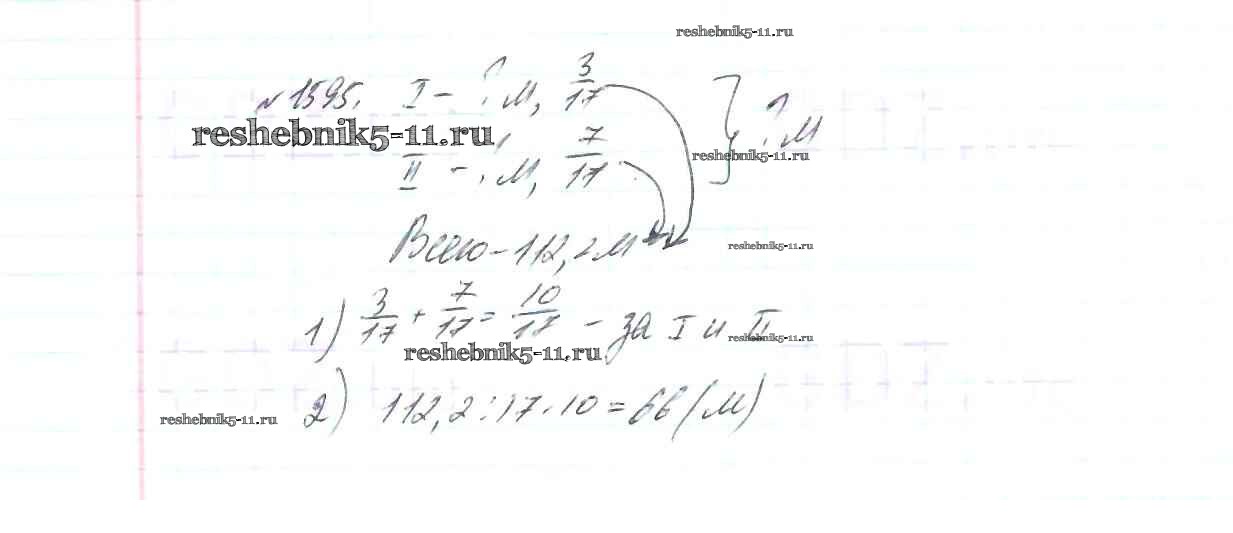 reshebnik5-11.ru
№ 1595. I – ? м, 3/17
reshebnik5-11.ru
} ? м
reshebnik5-11.ru
II – ? м, 7/17
Всего – 112,2 м
reshebnik5-11.ru
1) 3/17 + 7/17 = 10/17 – за I и II
reshebnik5-11.ru
reshebnik5-11.ru
2) 112,2 : 17 · 10 = 66 (м)
reshebnik5-11.ru